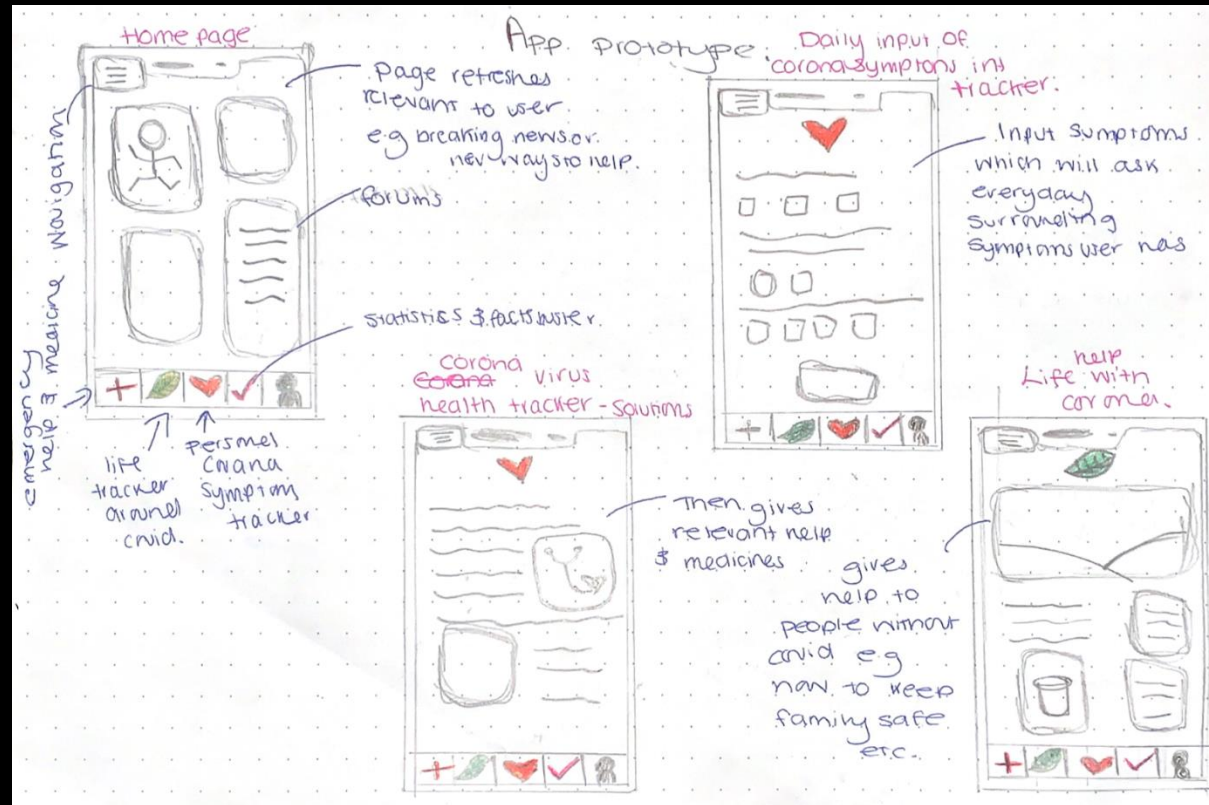 App prototype.
Home page
Page refreshes
relevant to user
e.g breaking news or
new ways to help.
forums
statistics & facts buster.
navigation
emergency
help & medicine
life
tracker
around
covid.
personel
Corona
Symptom
tracker
Daily input of
corona symptons into
tracker.
Input symptoms
which will ask
everyday
surrounding
symptoms user has
corona virus
health tracker - solutions
Then gives
relevant help
& medicines
help
Life with
corona.
gives
help to
people without
covid e.g
how to keep
family safe
etc.